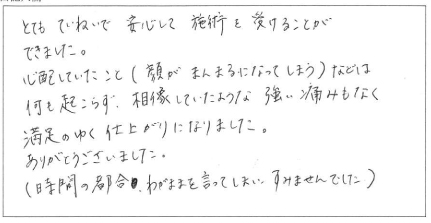 とても ていねいで 安心して 施術を 受けることが
できました。
心配していたこと(顔が まんまるになってしまう)などは
何も起こらず、想像していたような 強い痛みもなく
満足のゆく 仕上がりになりました。
ありがとうございました。
(時間の都合、わがままを言ってしまい すみませんでした)